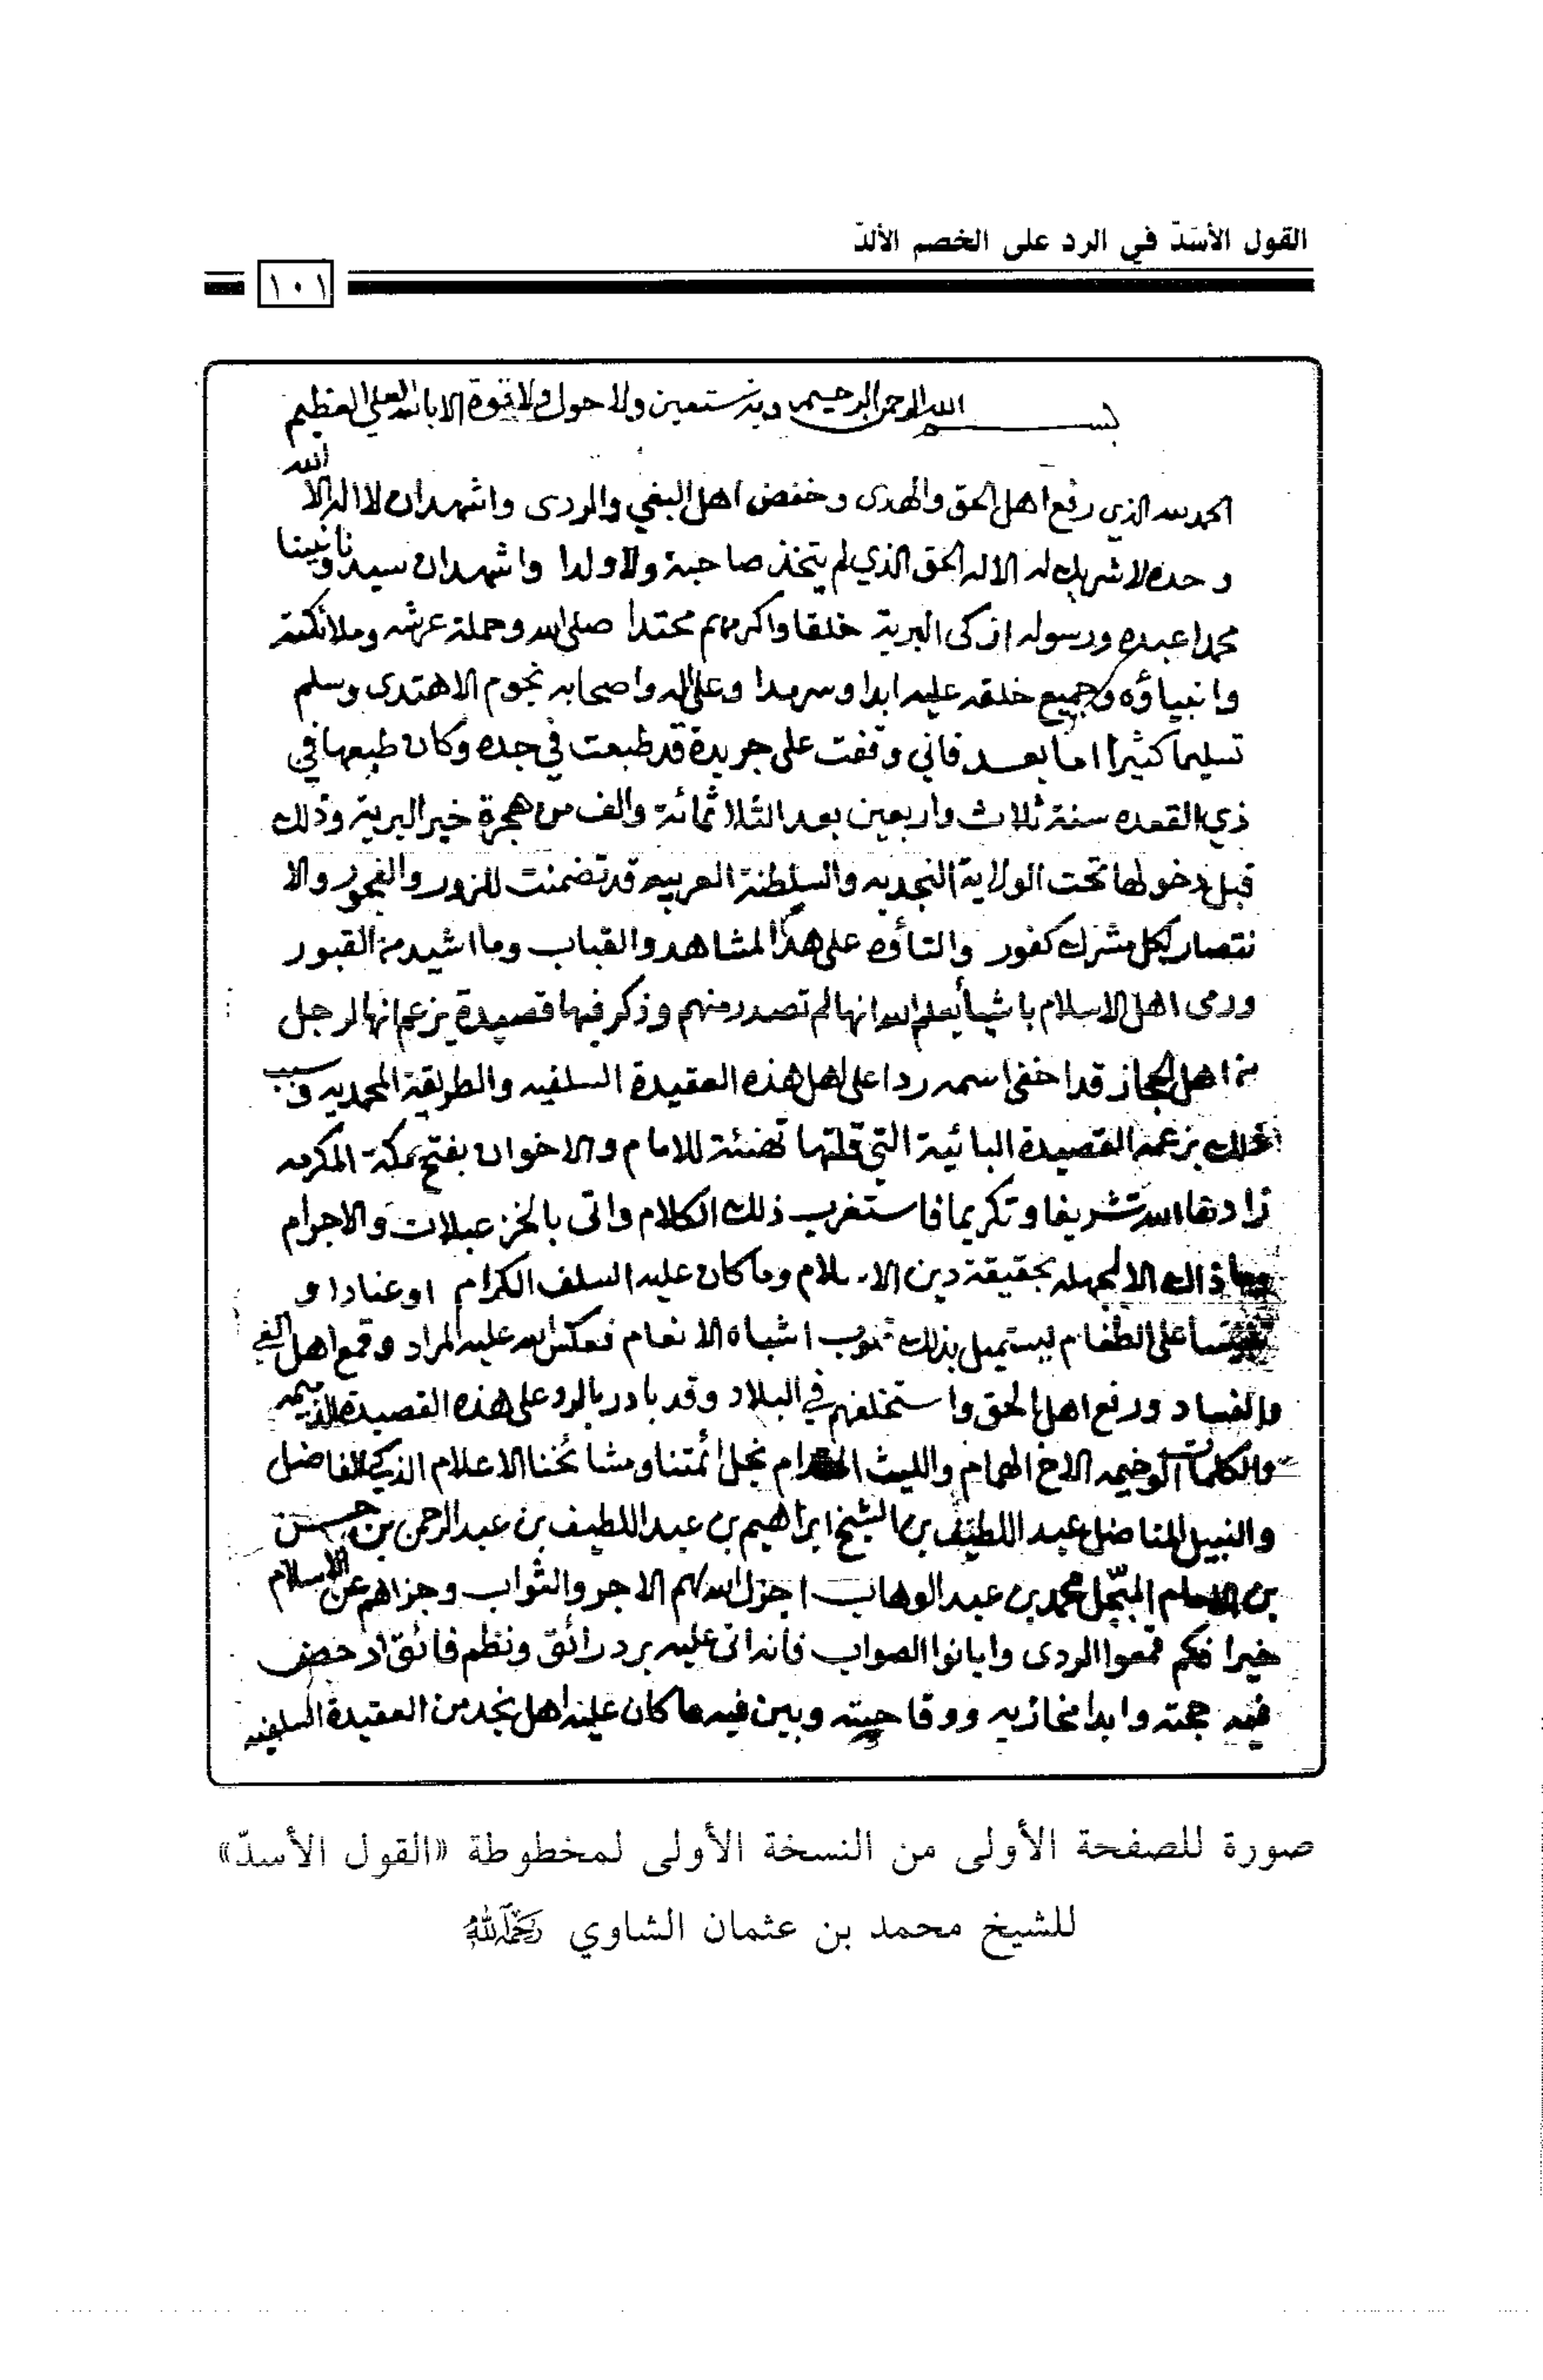 القول الأسَدّ في الرد على الخصم الألدّ
١٠١
بسم الله الرحمن الرحيم وبه نستعين ولا حول ولا قوة الا بالله العلي العظيم
الحمد لله الذي رفع اهل الحق والهدى وخفض اهل البغي والردى واشهد ان لا اله الا الله
وحده لا شريك له الاله الحق الذي لم يتخذ صاحبة ولا ولدا واشهد ان سيدنا ونبينا
محمدا عبده ورسوله ازكى البرية خلقا واكرمهم محتدا صلى الله وحملة عرشه وملائكته
وانبياؤه وجميع خلقه عليه ابدا وسرمدا وعلى اله واصحابه نجوم الاهتدى وسلم
تسليما كثيرا اما بعد فاني وقفت على جريدة قد طبعت في جده وكان طبعها في
ذي القعده سنة ثلاث واربعين بعد الثلاثمائة والف من هجرة خير البرية وذلك
قبل دخولها تحت الولاية النجديه والسلطنة العربيه قد تضمنت للزور والفجور والا
نتصار لكل مشرك كفور والتأوه على هذا المشاهد والقباب وما اشيد من القبور
ورمى اهل الاسلام باشيأ يعلم الله انها لم تصدر منهم وذكر فيها قصيدة يزعم انها لرجل
من اهل الحجاز قد اخفى اسمه ردا على اهل هذه العقيدة السلفيه والطريقة المحمديه وسبب
ذلك بزعمه القصيدة البائية التي قلتها تهنئة للامام والاخوان بفتح مكة المكرمه
زادها الله تشريفا وتكريما فاستغرب ذلك الكلام واتى بالخزعبلات والاجرام
وما ذاك الا لجهله بحقيقة دين الاسلام وما كان عليه السلف الكرام او عنادا و
على الطغام ليستميل بذلك قلوب اشباه الانعام فعكس الله عليه المراد وقمع اهل الغي
والفساد ورفع اهل الحق واستخلفهم في البلاد وقد بادر بالرد على هذه القصيدة الذميمه
والكلمات الوخيمه الاخ الهمام والليث المقدام نجل ائمتنا ومشائخنا الاعلام الذكي الفاضل
والنبيل المناضل عبد اللطيف بن الشيخ ابراهيم بن عبد اللطيف بن عبد الرحمن بن حسن
بن الامام المبجّل محمد بن عبد الوهاب اجزل الله لهم الاجر والثواب وجزاهم عن الاسلام
خيرا فكم قمعوا الردى وابانوا الصواب فانه اتى عليه برد رائق ونظم فائق ادحض
فيه حجته وابدا مخازيه ووقاحته وبين فيه ما كان عليه اهل نجد من العقيدة السلفيه
صورة للصفحة الأولى من النسخة الأولى لمخطوطة «القول الأسدّ»
للشيخ محمد بن عثمان الشاوي رحمه الله